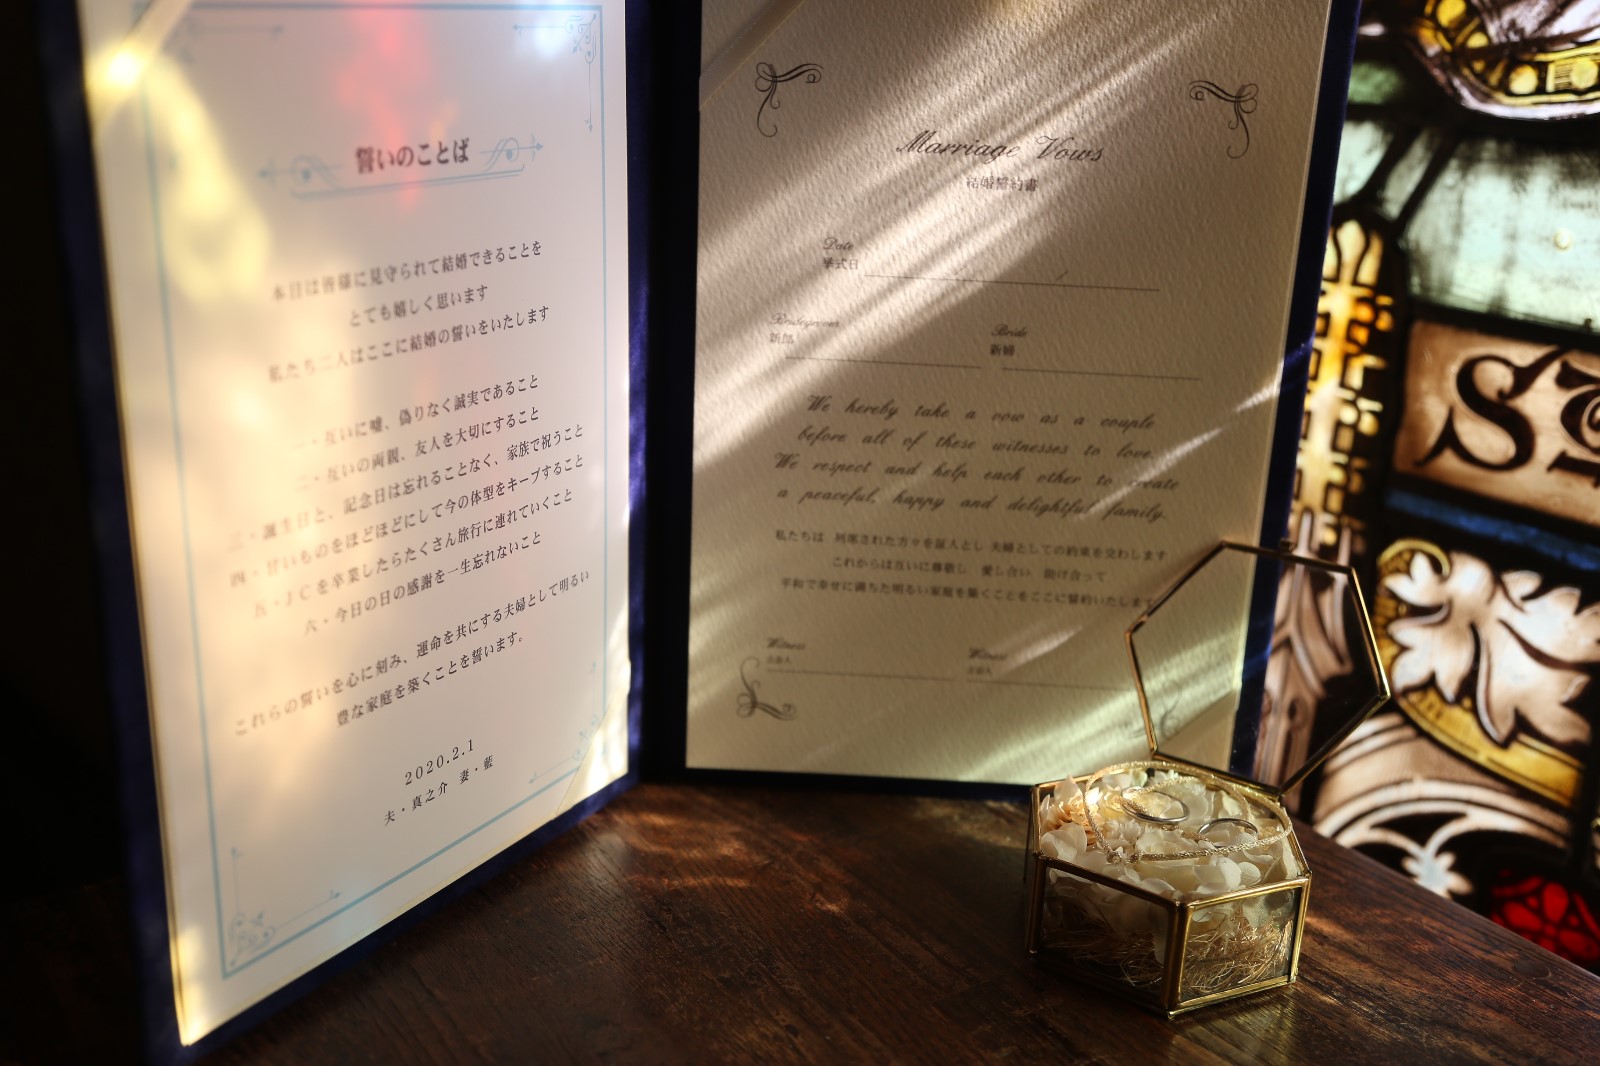 誓いのことば
本日は皆様に見守られて結婚できることを
とても嬉しく思います
私たち二人はここに結婚の誓いをいたします
一・互いに嘘、偽りなく誠実であること
二・互いの両親、友人を大切にすること
三・誕生日と、記念日は忘れることなく、家族で祝うこと
四・甘いものをほどほどにして今の体型をキープすること
五・JCを卒業したらたくさん旅行に連れていくこと
六・今日の日の感謝を一生忘れないこと
これらの誓いを心に刻み、運命を共にする夫婦として明るい
豊な家庭を築くことを誓います。
2020.2.1
夫・真之介 妻・藍
Marriage Vows
結婚誓約書
Date
挙式日
Bridegroom
新郎
Bride
新婦
We hereby take a vow as a couple
before all of these witnesses to love.
We respect and help each other to create
a peaceful, happy and delightful family.
私たちは 列席された方々を証人とし 夫婦としての約束を交わします
これからは互いに尊敬し 愛し合い 助け合って
平和で幸せに満ちた明るい家庭を築くことをここに誓約いたします
Witness
立会人
Witness
立会人